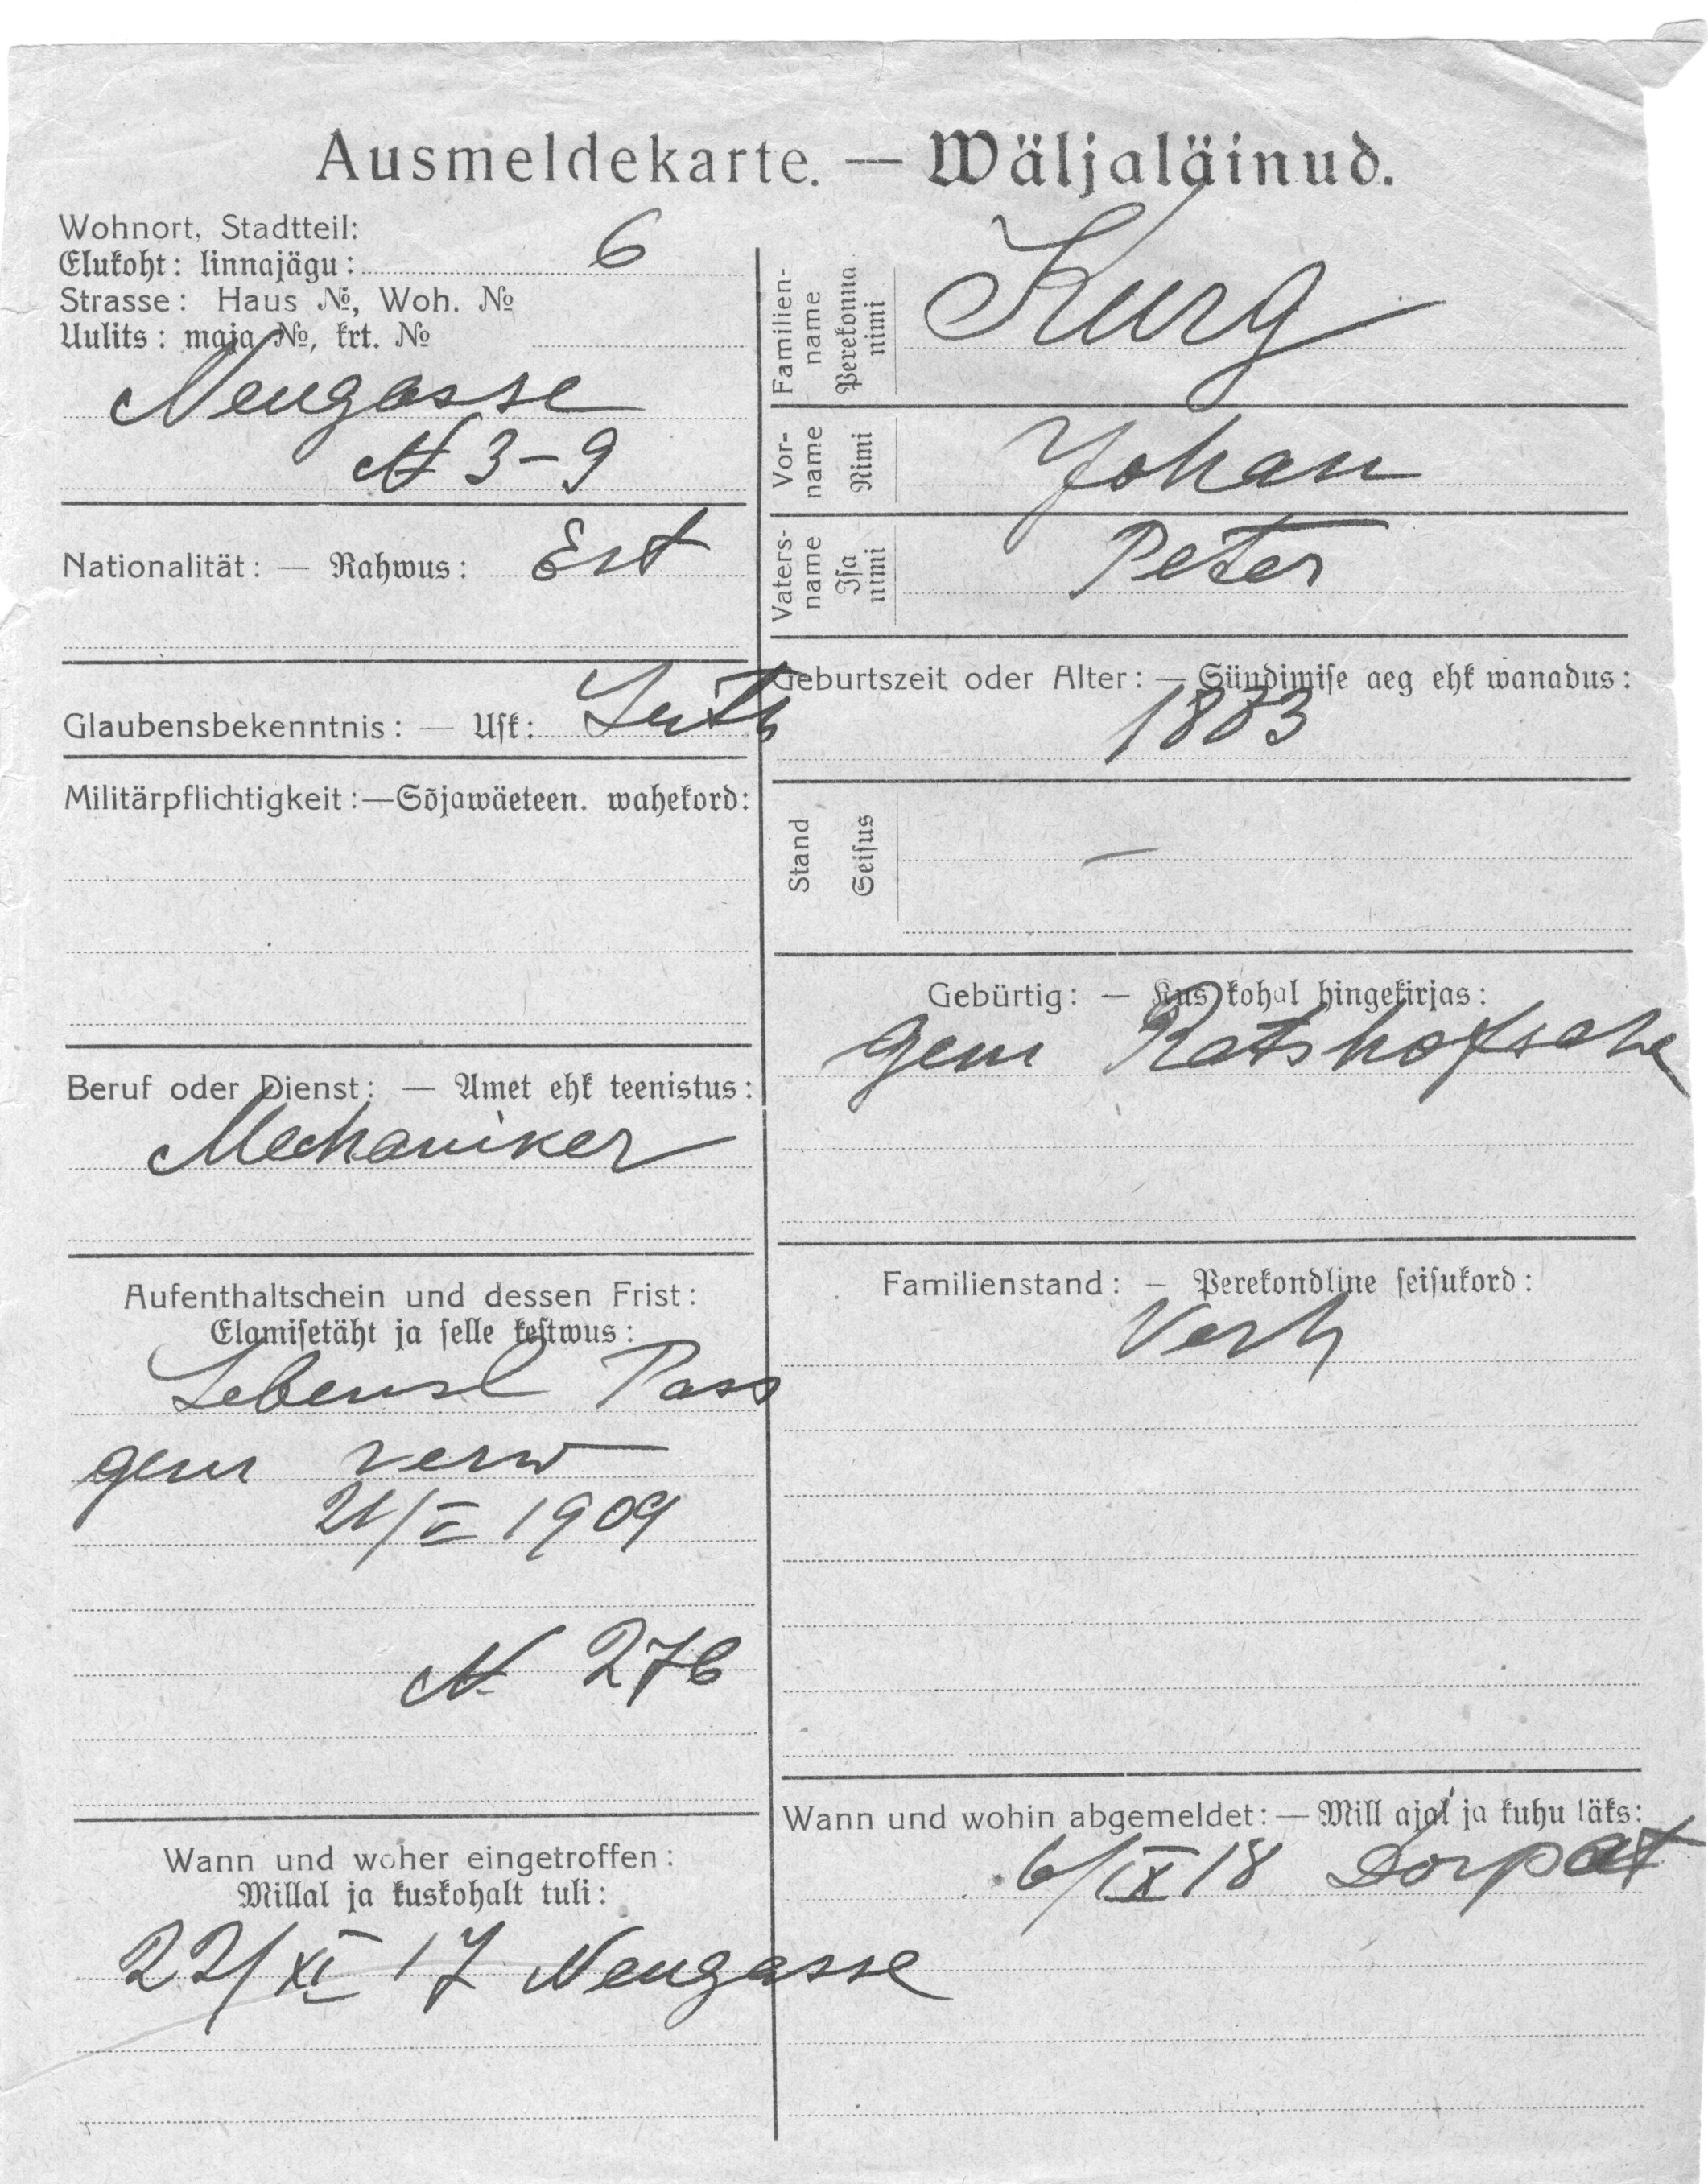 Ausmeldekarte. — Wäljaläinud.
Wohnort, Stadtteil:
Elukoht: linnajägu: 6
Strasse: Haus №, Woh. №
Uulits: maja №, krt. №
Neugasse
N 3-9
Nationalität: — Rahwus: Est
Glaubensbekenntnis: — Usk: Luth
Militärpflichtigkeit:—Sõjawäeteen. wahekord:
Beruf oder Dienst: — Amet ehk teenistus:
Mechaniker
Aufenthaltschein und dessen Frist:
Elamisetäht ja selle kestwus:
Lebensl Pass
gem verw
21/V 1909
N 276
Wann und woher eingetroffen:
Millal ja kuskohalt tuli:
22/XI 17 Neugasse
Familien-
name
Perekonna
nimi
Kurg
Vor-
name
Nimi
Johan
Vaters-
name
Isa
nimi
Peter
Geburtszeit oder Alter: — Sündimise aeg ehk wanadus:
1883
Stand
Seisus
—
Gebürtig: — Kus kohal hingekirjas:
gem Ratshofsche
Familienstand: — Perekondline seisukord:
Verh
Wann und wohin abgemeldet: — Mill ajal ja kuhu läks:
6/IX 18 Dorpat